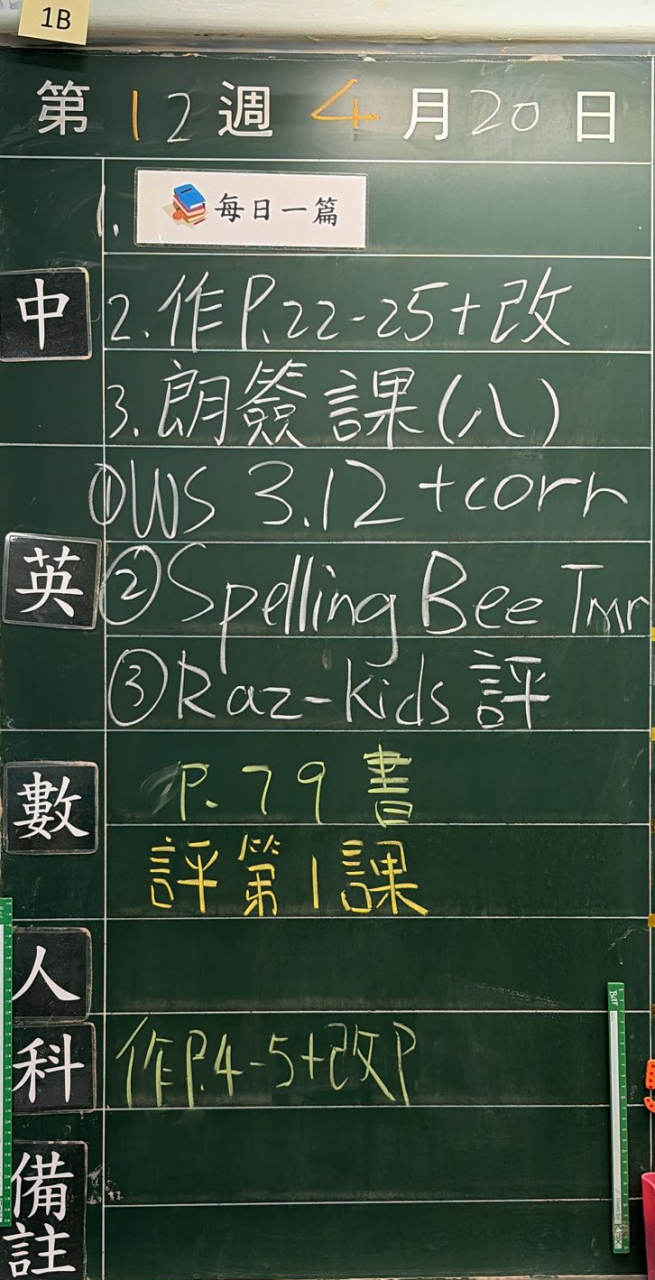 1B
第 12 週 4 月 20 日
1. 每日一篇
中
2. 作 P.22-25+改
3. 朗簽課(八)
①WS 3.12 +corr
英
②Spelling Bee Tmr
③Raz-Kids 評
數
P.79 書
評第1課
人
科
作P.4-5+改P
備註